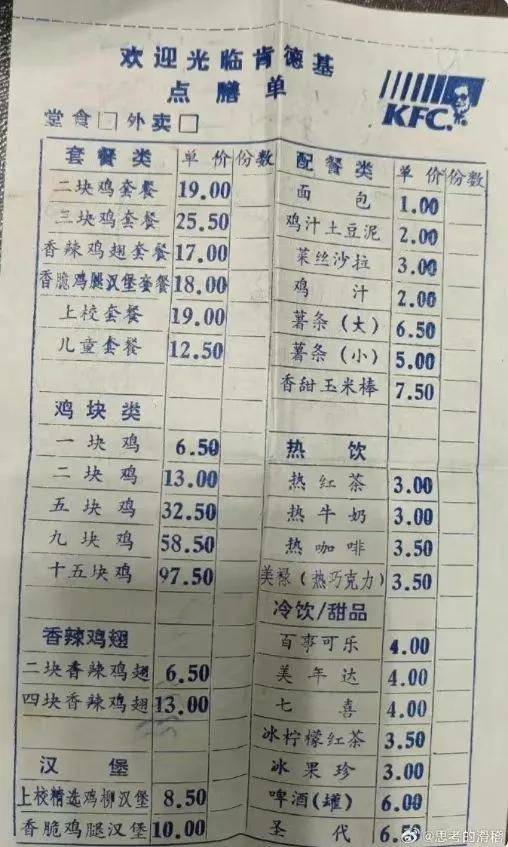 欢迎光临肯德基
点膳单
KFC.
堂食□ 外卖□
套餐类 单价 份数
二块鸡套餐 19.00
三块鸡套餐 25.50
香辣鸡翅套餐 17.00
香脆鸡腿汉堡套餐 18.00
上校套餐 19.00
儿童套餐 12.50
鸡块类
一块鸡 6.50
二块鸡 13.00
五块鸡 32.50
九块鸡 58.50
十五块鸡 97.50
香辣鸡翅
二块香辣鸡翅 6.50
四块香辣鸡翅 13.00
汉堡
上校精选鸡柳汉堡 8.50
香脆鸡腿汉堡 10.00
配餐类 单价 份数
面包 1.00
鸡汁土豆泥 2.00
菜丝沙拉 3.00
鸡汁 2.00
薯条(大) 6.50
薯条(小) 5.00
香甜玉米棒 7.50
热饮
热红茶 3.00
热牛奶 3.00
热咖啡 3.50
美禄(热巧克力) 3.50
冷饮/甜品
百事可乐 4.00
美年达 4.00
七喜 4.00
冰柠檬红茶 3.50
冰果珍 3.00
啤酒(罐) 6.00
圣代
@思考的滑稽